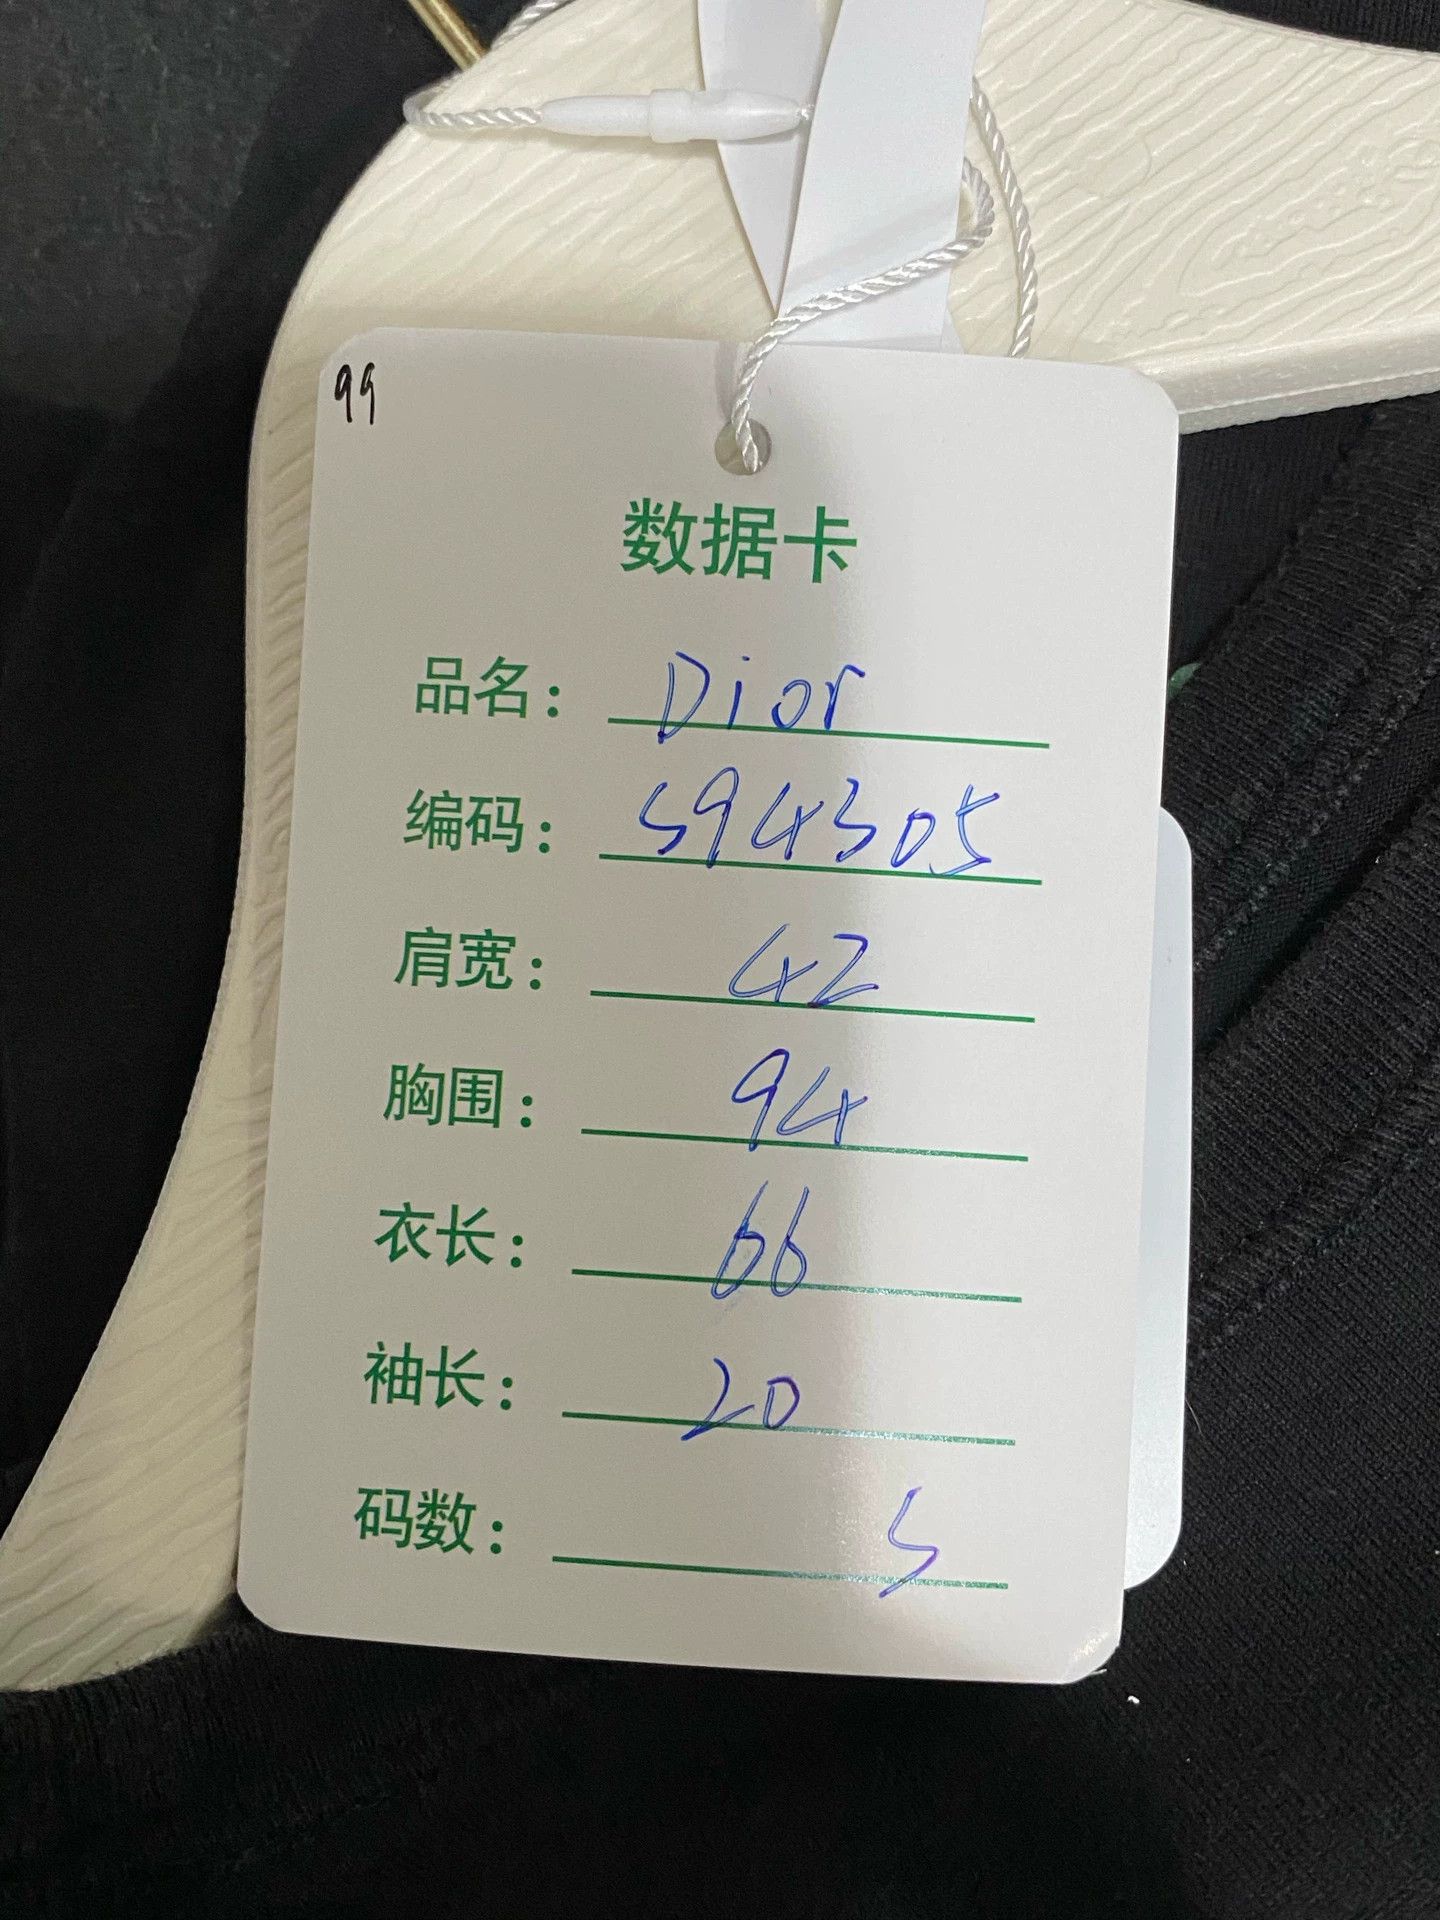 99
数据卡
品名: Dior
编码: S94305
肩宽: 42
胸围: 94
衣长: 66
袖长: 20
码数: S